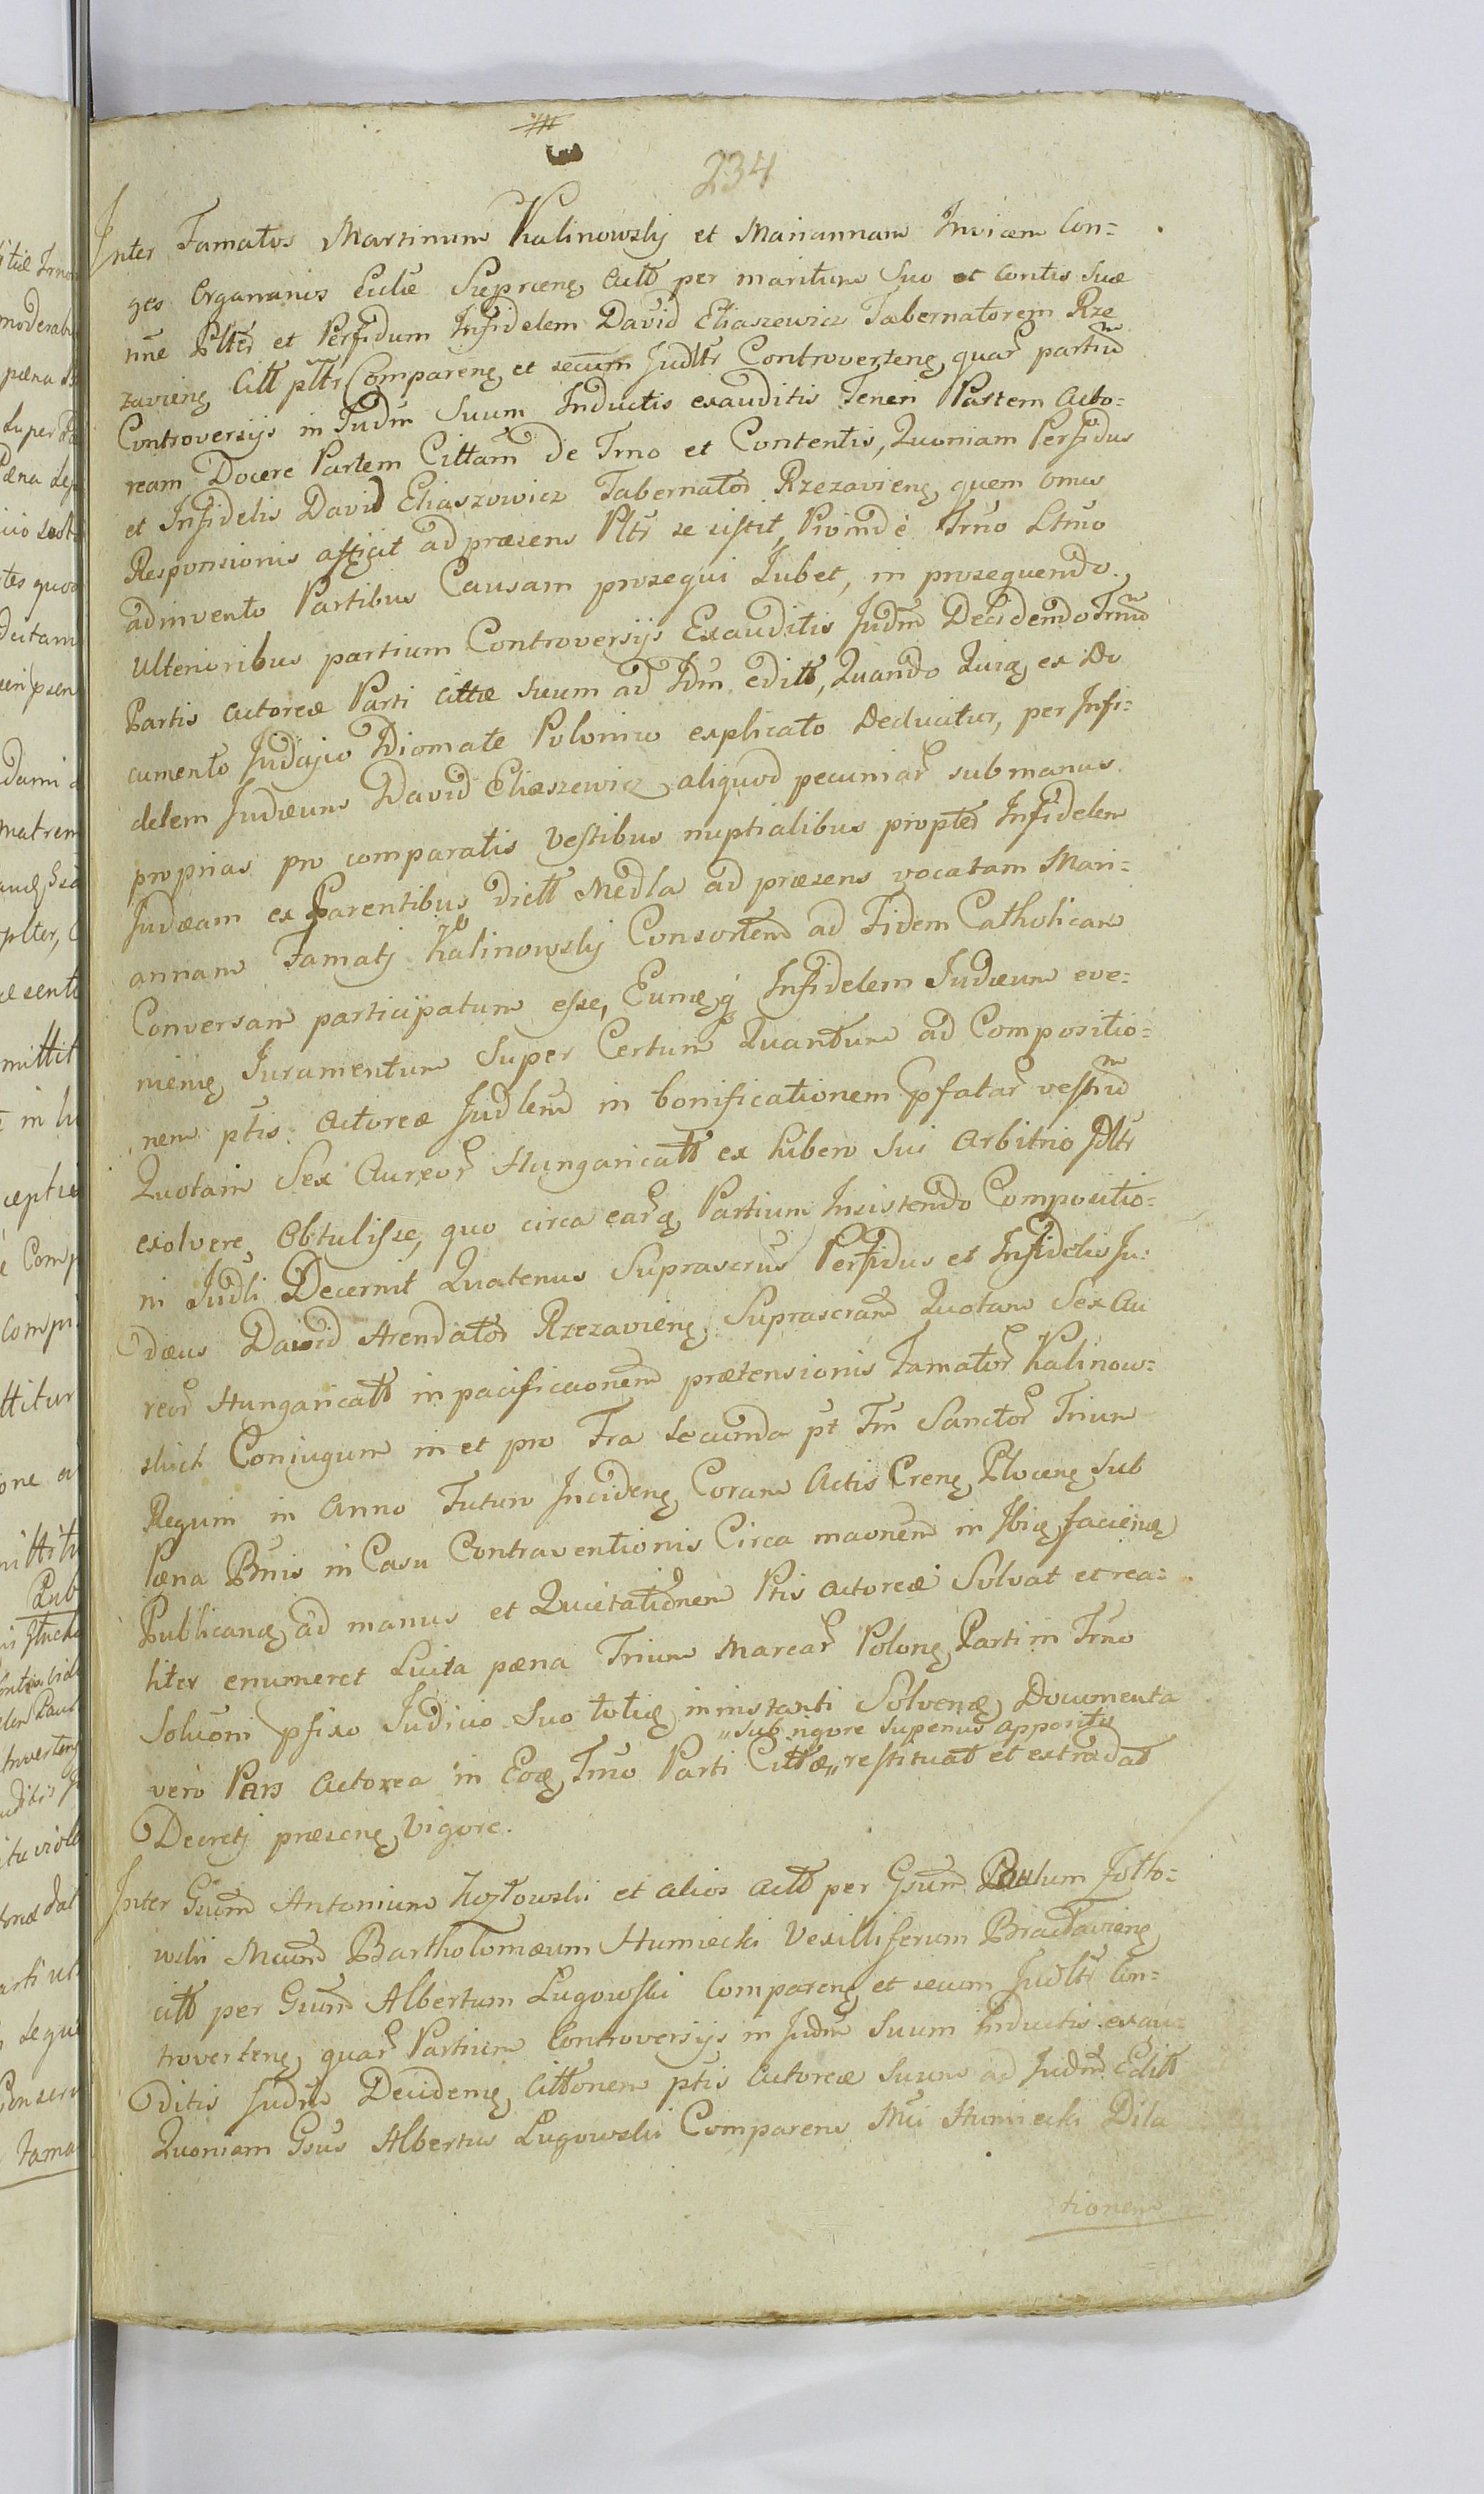 234
Inter Famatos Martinum Kalinowskj et Mariannam Invicem Con=
ges Organarios Ecclæ Sieprcens, Actt per maritum Suo et Contis Suæ
nne Plter et Perfidum Infidelem David Eliaszewicz Tabernatorem Rze
zaviens Citt pltr Comparens et secum Judltr Controvertens, quar partiu
Controversijs in Judm Suum Inductis exauditis Teneri Partem Acto=
ream Docere Partem Cittam De Trno et Contentis, Quoniam Perfidus
et Infidelis David Eliaszowicz Tabernator Rzezaviens, quem onus
Responsionis afficit ad præsens Pltr se sistit, Proindè Trno Ltmo
adinvento Partibus Causam prosequi Jubet, in prosequendo
Ulterioribus partium Controversijs Exauditis Judm Decidendo Trnu
Partis Actoreæ Parti Cittæ Suum ad Jdm editt, Quando Quidq ex Do
cumento Judajco Idiomate Polonico explicato Deducitur, per Infi=
delem Judæum David Eliaszewicz aliquod pecuniar sub manus
proprias pro comparatis Vestibus nuptialibus propter Infidelem
Judæam ex Parentibus Dictt Medla ad præsens vocatam Mari=
annam Famatj Kalinowskj Consortem ad Fidem Catholicam
Conversam participatum esse, Eumq q Infidelem Judæum eve=
niens Juramentum Super Certum Quantum ad Compositio=
nem ptis Actoreæ Judlem in bonificationem pfatar vestiu
Quotam Sex Aureor Hungaricatt ex libero Sui Arbitrio Jdltr
exolvere Obtulisse, quo circa earq Partium Insistendo Compositio=
ni Judli Decernit Quatenus Suprascrus Perfidus et Infidelis Ju=
dæus David Arendator Rzezaviens, Suprascram Quotam Sex Au
reor Hungaricatt in pacificaonem prætensionis Famator Kalinow=
skich Conjugum in et pro Fra secunda pt Fm Sanctor Trium
Regum in Anno Futuro Incidens Coram Actis Crens Plocens Sub
Pæna Bnis in Casu Contraventionis Circa maonem in Ibiq faciend
Publicand ad manus et Quietationem Ptis Actoreæ Solvat et rea=
liter enumeret Luita pæna Trium Marcar Polons, Parti in Trno
Soluoni pfixo Judicio Suo totiq in instanti Solvend, Documenta
„Sub rigore superius apposito
vero Pars Actorea in Eodq Trno Parti Cittæ„ restituat et extradat
Decretj præsens Vigore.
Inter Gsum Antonium Kozłowski et alios Actt per Gsum Paulum Jotto=
wski Mcum Bartholomæum Humiecki Vexilliferum Braclaviens
citt per Gsum Albertum Lugowski Comparens et secum Judltr Con=
trovertens, quar Partium Controversijs in Judm Suum Inductis exau=
ditis Judm Decidens, Cittonem ptis Actoreæ Suum ad Judm Editt
Quoniam Gsus Albertus Lugowski Comparens Mci Humiecki Dila
tionem